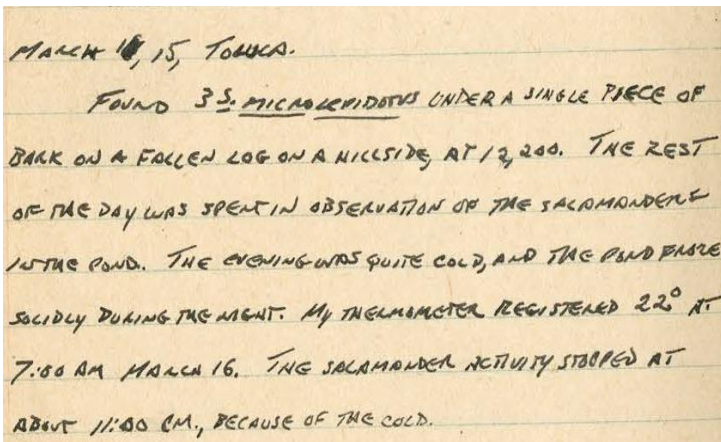 MARCH 15, TOLUCA.
FOUND 3 S. MICROLEPIDOTUS UNDER A SINGLE PIECE OF
BARK ON A FALLEN LOG ON A HILLSIDE, AT 12,200. THE REST
OF THE DAY WAS SPENT IN OBSERVATION OF THE SALAMANDERS
IN THE POND. THE EVENING WAS QUITE COLD, AND THE POND FROZE
SOLIDLY DURING THE NIGHT. MY THERMOMETER REGISTERED 22° AT
7:00 AM MARCH 16. THE SALAMANDER ACTIVITY STOPPED AT
ABOUT 11:00 PM., BECAUSE OF THE COLD.